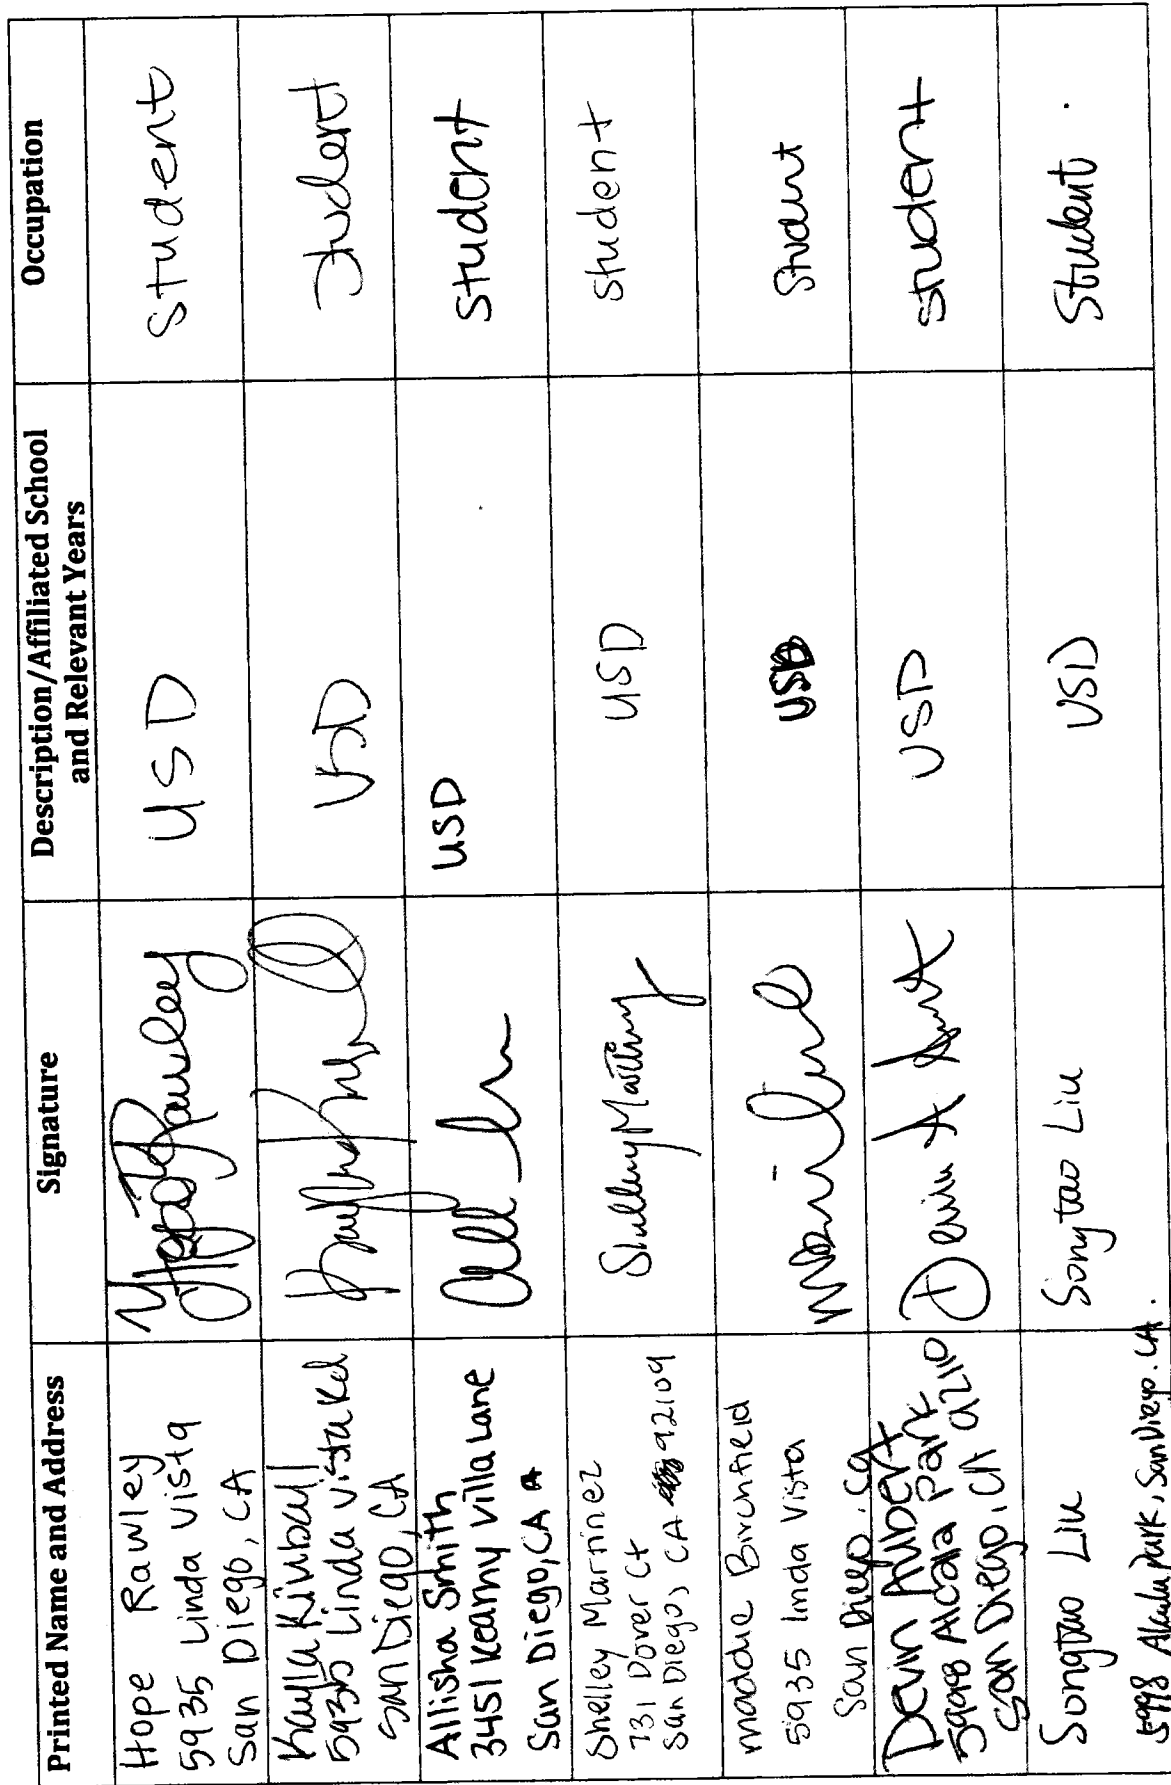 Printed Name and Address
Signature
Description/Affiliated School
and Relevant Years
Occupation
Hope Rawley
5935 Linda Vista
San Diego, CA
Hope Rawley
USD
Student
Kaylla Kimball
5935 Linda Vista Rd
San Diego, CA
USD
Student
Allisha Smith
3451 Kearny Villa Lane
San Diego, CA
USD
Student
Shelley Martinez
731 Dover Ct
San Diego, CA 92109
Shelley Martinez
USD
student
maddie Birchfield
5935 linda Vista
San Diego, Ca
USD
Student
Devin Aubert
5998 Alcala Park
San Diego, CA 92110
USD
student
Songtao Liu
5998 Alcala Park, San Diego. CA.
Songtao Liu
USD
Student.